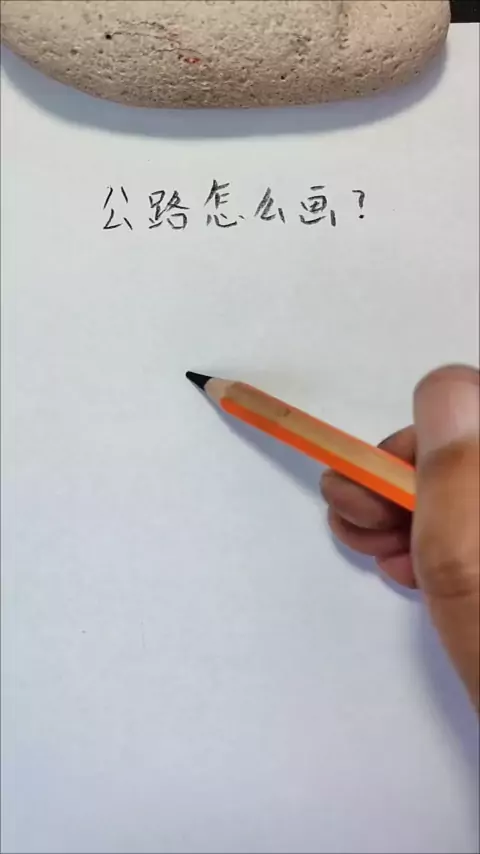 公路怎么画?